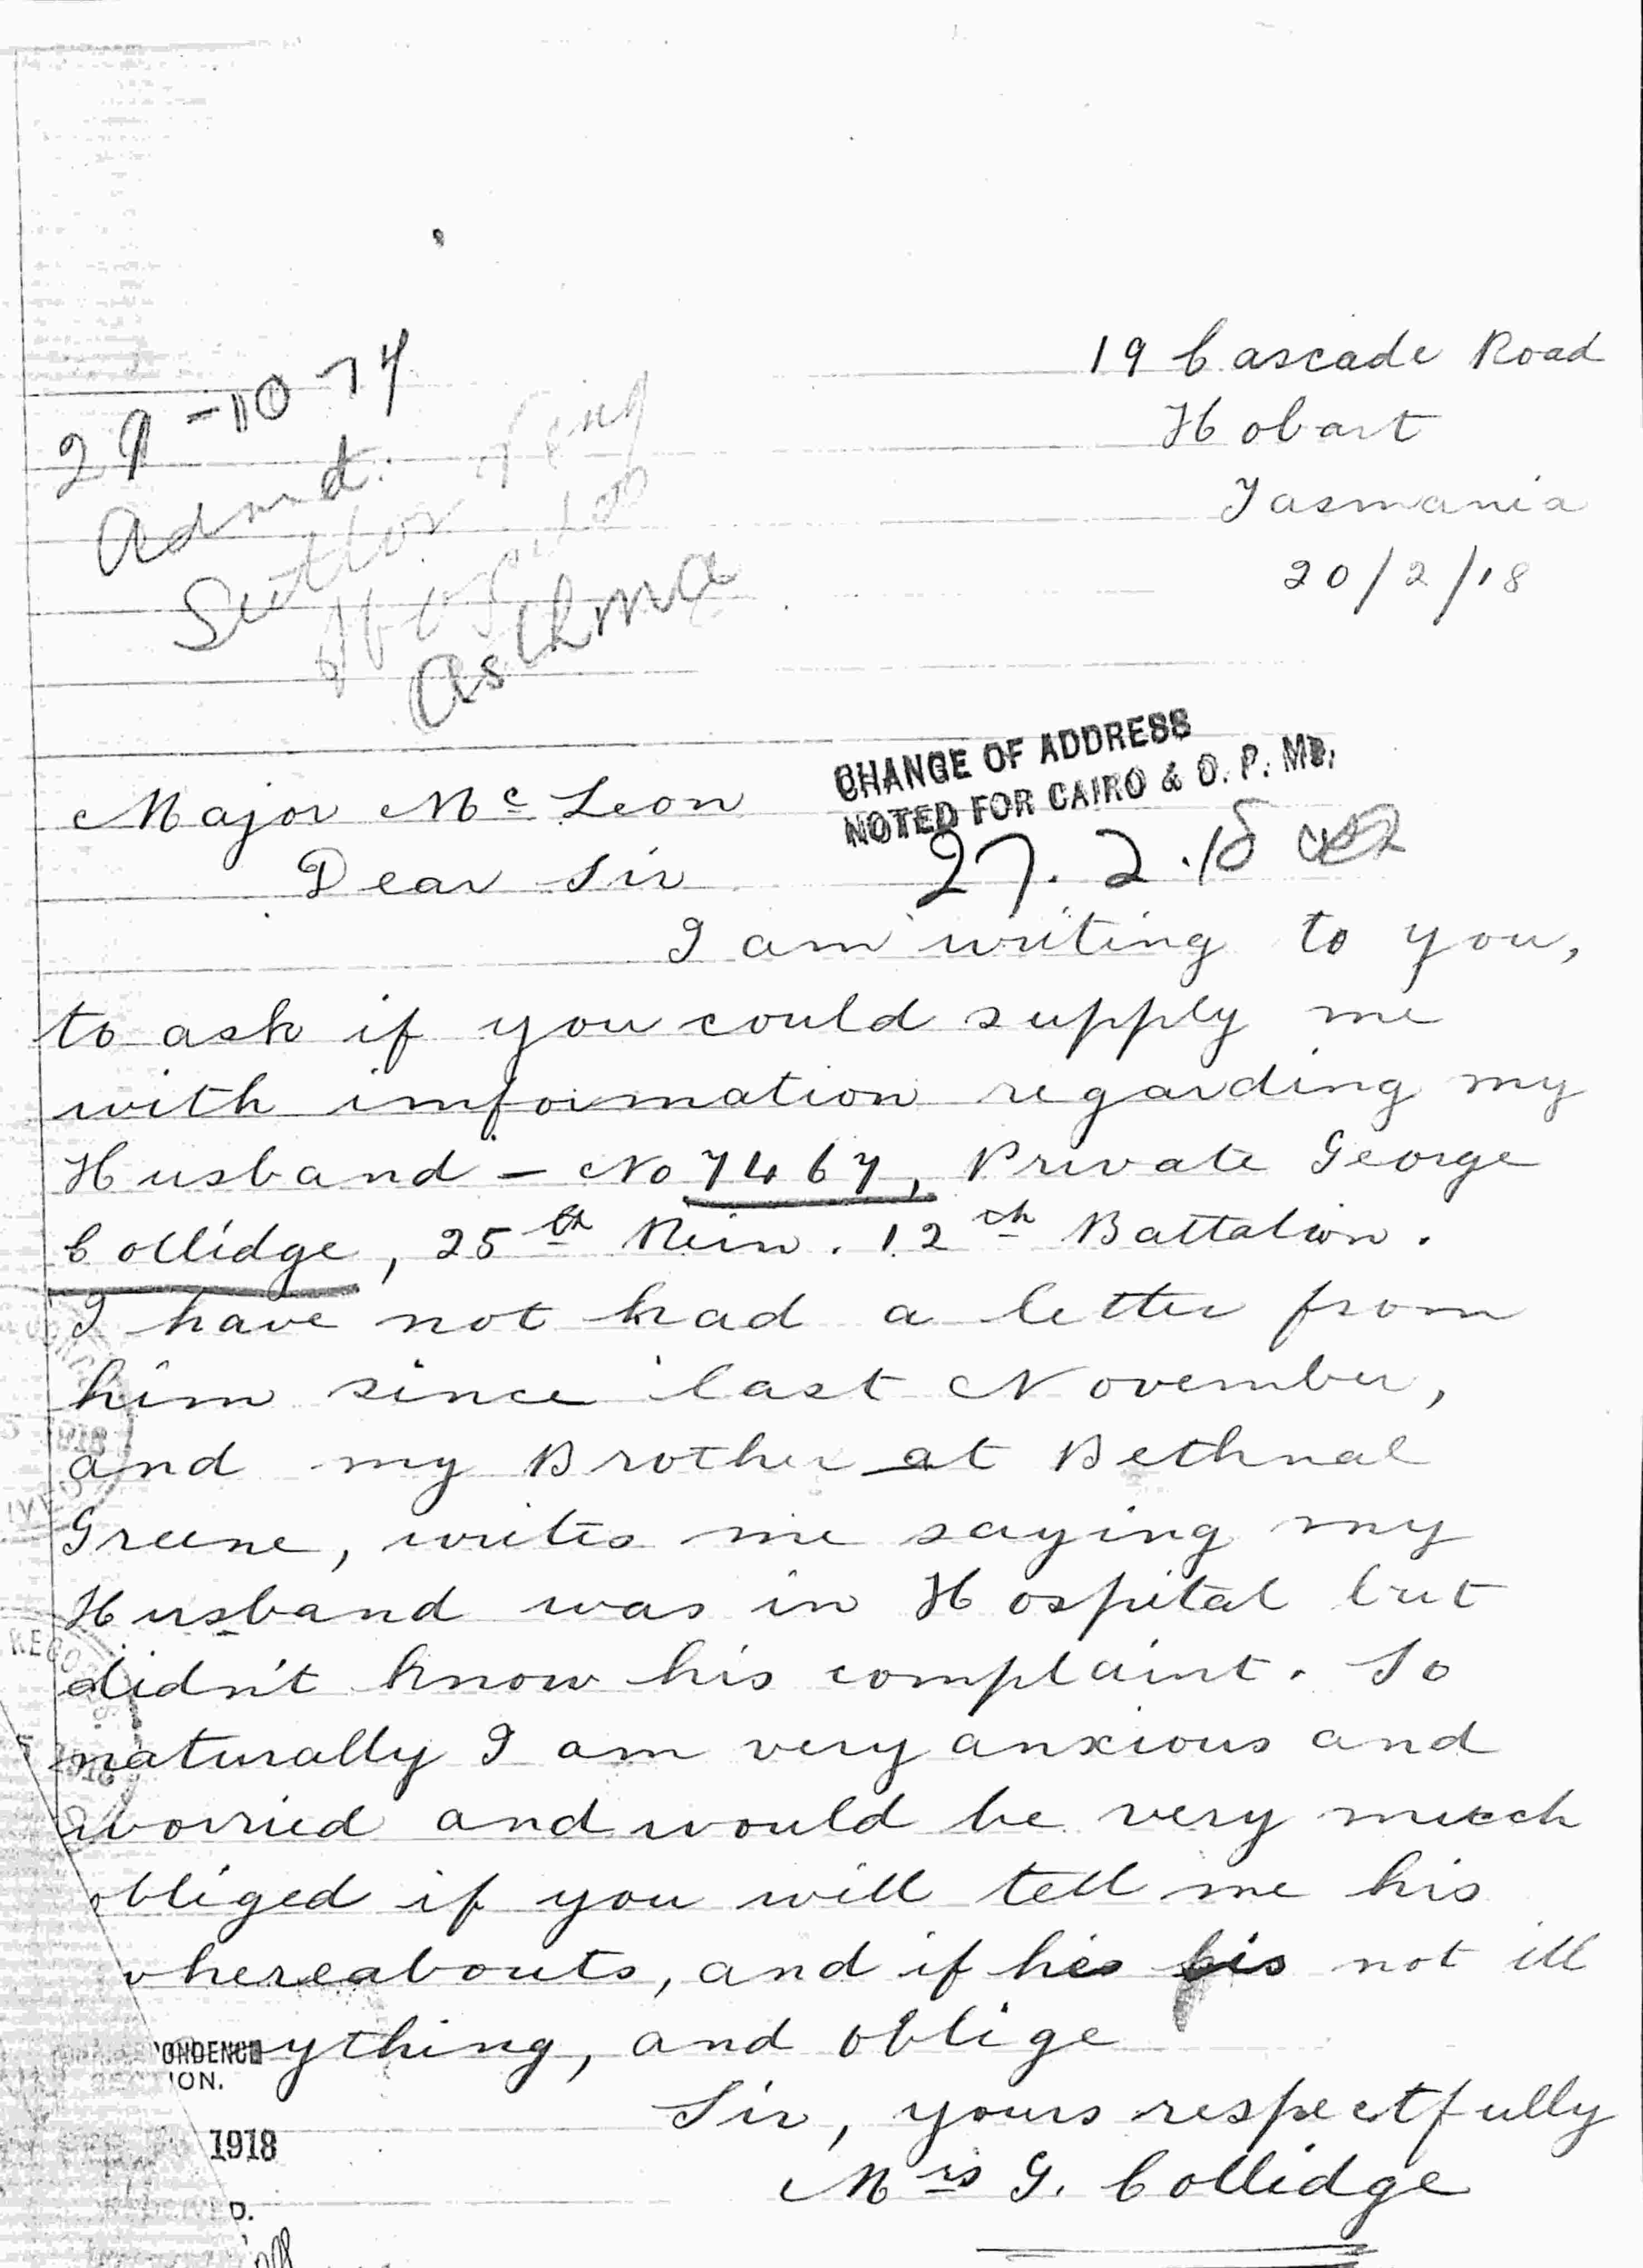 19 Cascade Road
Hobart
Tasmania
20/2/18
29-10-17
Admd.
Sutton Veny
Hospital
Asthma
CHANGE OF ADDRESS
NOTED FOR CAIRO & O. P. MD.
27.2.18
Major Mc Leon
Dear Sir
I am writing to you,
to ask if you could supply me
with imformation regarding my
Husband - No 7467, Private George
Collidge, 25th Rein. 12th Battalion.
I have not had a letter from
him since last November,
and my Brother at Bethnal
Greene, writes me saying my
Husband was in Hospital but
didn't know his complaint. So
naturally I am very anxious and
worried and would be very much
obliged if you will tell me his
whereabouts, and if he is not ill
ything, and oblige
Sir, yours respectfully
Mrs G. Collidge
PONDENCE
ION.
1918
D.